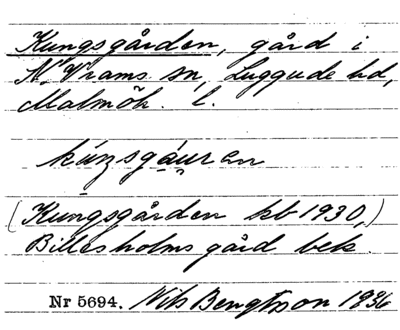 Kungsgården, gård i
N. Vrams sn, Luggude hd,
Malmöh. l.
kúŋsgáuṛen
(Kungsgården kb 1930,)
Billesholms gård bek.
Nr 5694. Nils Bengtsson 1936